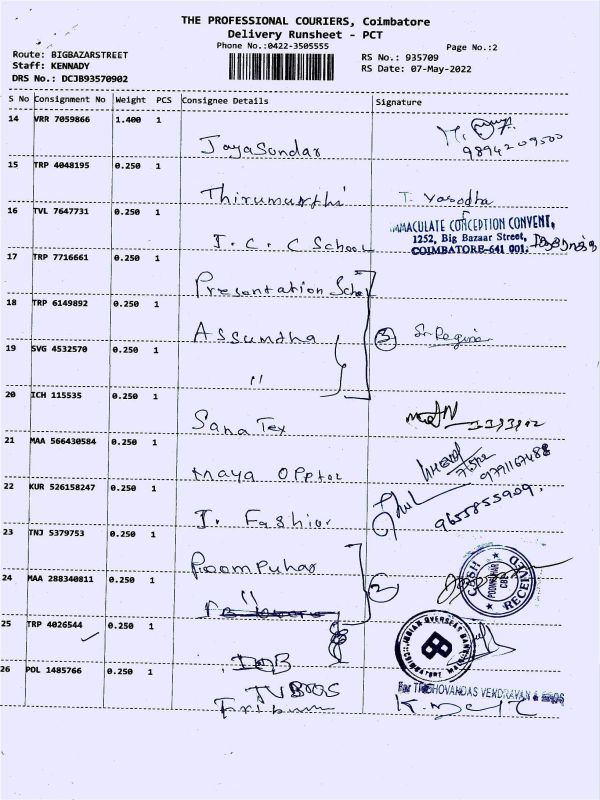 THE PROFESSIONAL COURIERS, Coimbatore
Delivery Runsheet - PCT
Phone No.:0422-3505555
Page No.:2
Route: BIGBAZARSTREET
Staff: KENNADY
DRS No.: DCJB93570902
RS No.: 935709
RS Date: 07-May-2022
S No Consignment No Weight PCS Consignee Details Signature
14 VRR 7059866 1.400 1
Jayasundar
9894209500
15 TRP 4048195 0.250 1
Thirumurthi T. Yasodha
16 TVL 7647731 0.250 1
I.C.C School
IMMACULATE CONCEPTION CONVENT,
1252, Big Bazaar Street,
COIMBATORE-641 001.
17 TRP 7716661 0.250 1
Presentation School
18 TRP 6149892 0.250 1
Assumtha
3 Sr. Regina
19 SVG 4532570 0.250 1
"
20 ICH 115535 0.250 1
Sana Tex
21 MAA 566430584 0.250 1
Maya Opptoz
9791167488
22 KUR 526158247 0.250 1
I. Fashion
9655855909.
23 TNJ 5379753 0.250 1
Poompuhar
2
CASH RECEIVED
POOMPUHAR
CBE
24 MAA 288340811 0.250 1
"
25 TRP 4026544 0.250 1
IOB
INDIAN OVERSEAS BANK
COIMBATORE MAIN
26 POL 1485766 0.250 1
TV BROS
For TRIBHOVANDAS VENDRAVAN & BROS